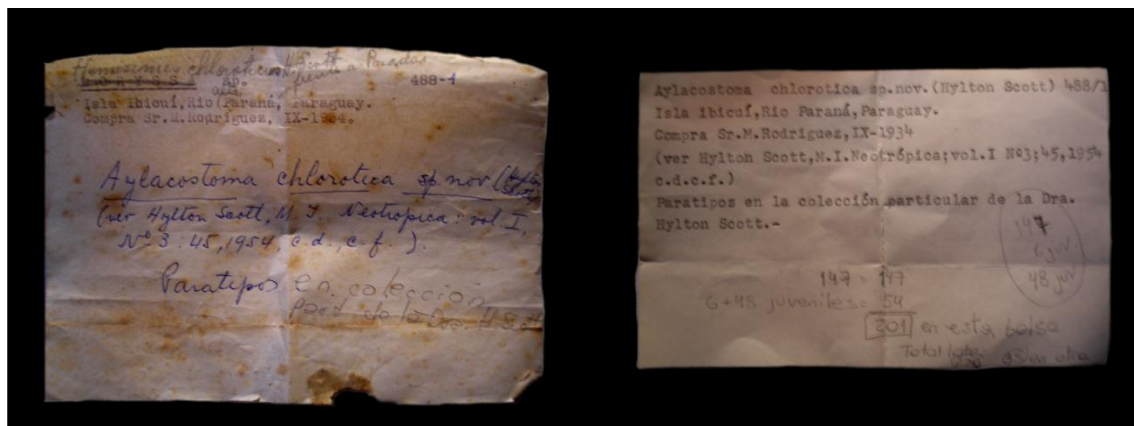 Hemisinus chloroticus H. Scott
frente a Posadas
DORYSSA sp. 488-1
Isla Ibicuí, Rio Paraná, Paraguay.
alto
Compra Sr.M.Rodríguez, IX-1934.
Aylacostoma chlorotica sp. nov (Hylton Scott)
(ver Hylton Scott, M. I. Neotropica: vol. I,
Nº 3 : 45, 1954, c.d., c.f. ).
Paratipos en colección
part. de la Dra. H. Scott
Aylacostoma chlorotica sp.nov.(Hylton Scott) 488/1
Isla ibicuí,Rio Paraná,Paraguay.
Compra Sr.M.Rodriguez,IX-1934
(ver Hylton Scott,M.I.Neotrópica;vol.I Nº3;45,1954
c.d.c.f.)
Paratipos en la colección particular de la Dra.
Hylton Scott.-
147
6 juv
48 juv
147 = 147
6+48 juveniles= 54
201 en esta bolsa
Total lote
en otra